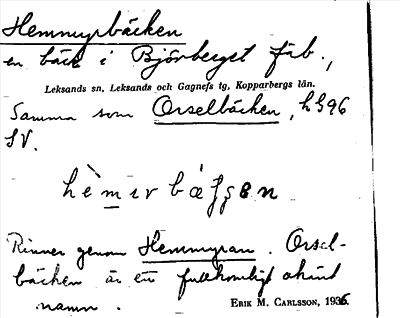 Hemmyrbäcken
en bäck i Björberget fäb.,
Leksands sn, Leksands och Gagnefs tg, Kopparbergs län.
Samma som Orselbäcken, h G96
SV.
Rinner genom Hemmyran. Orsel-
bäcken är ett fullkomligt okänt
namn.
ERIK M. CARLSSON, 1936.